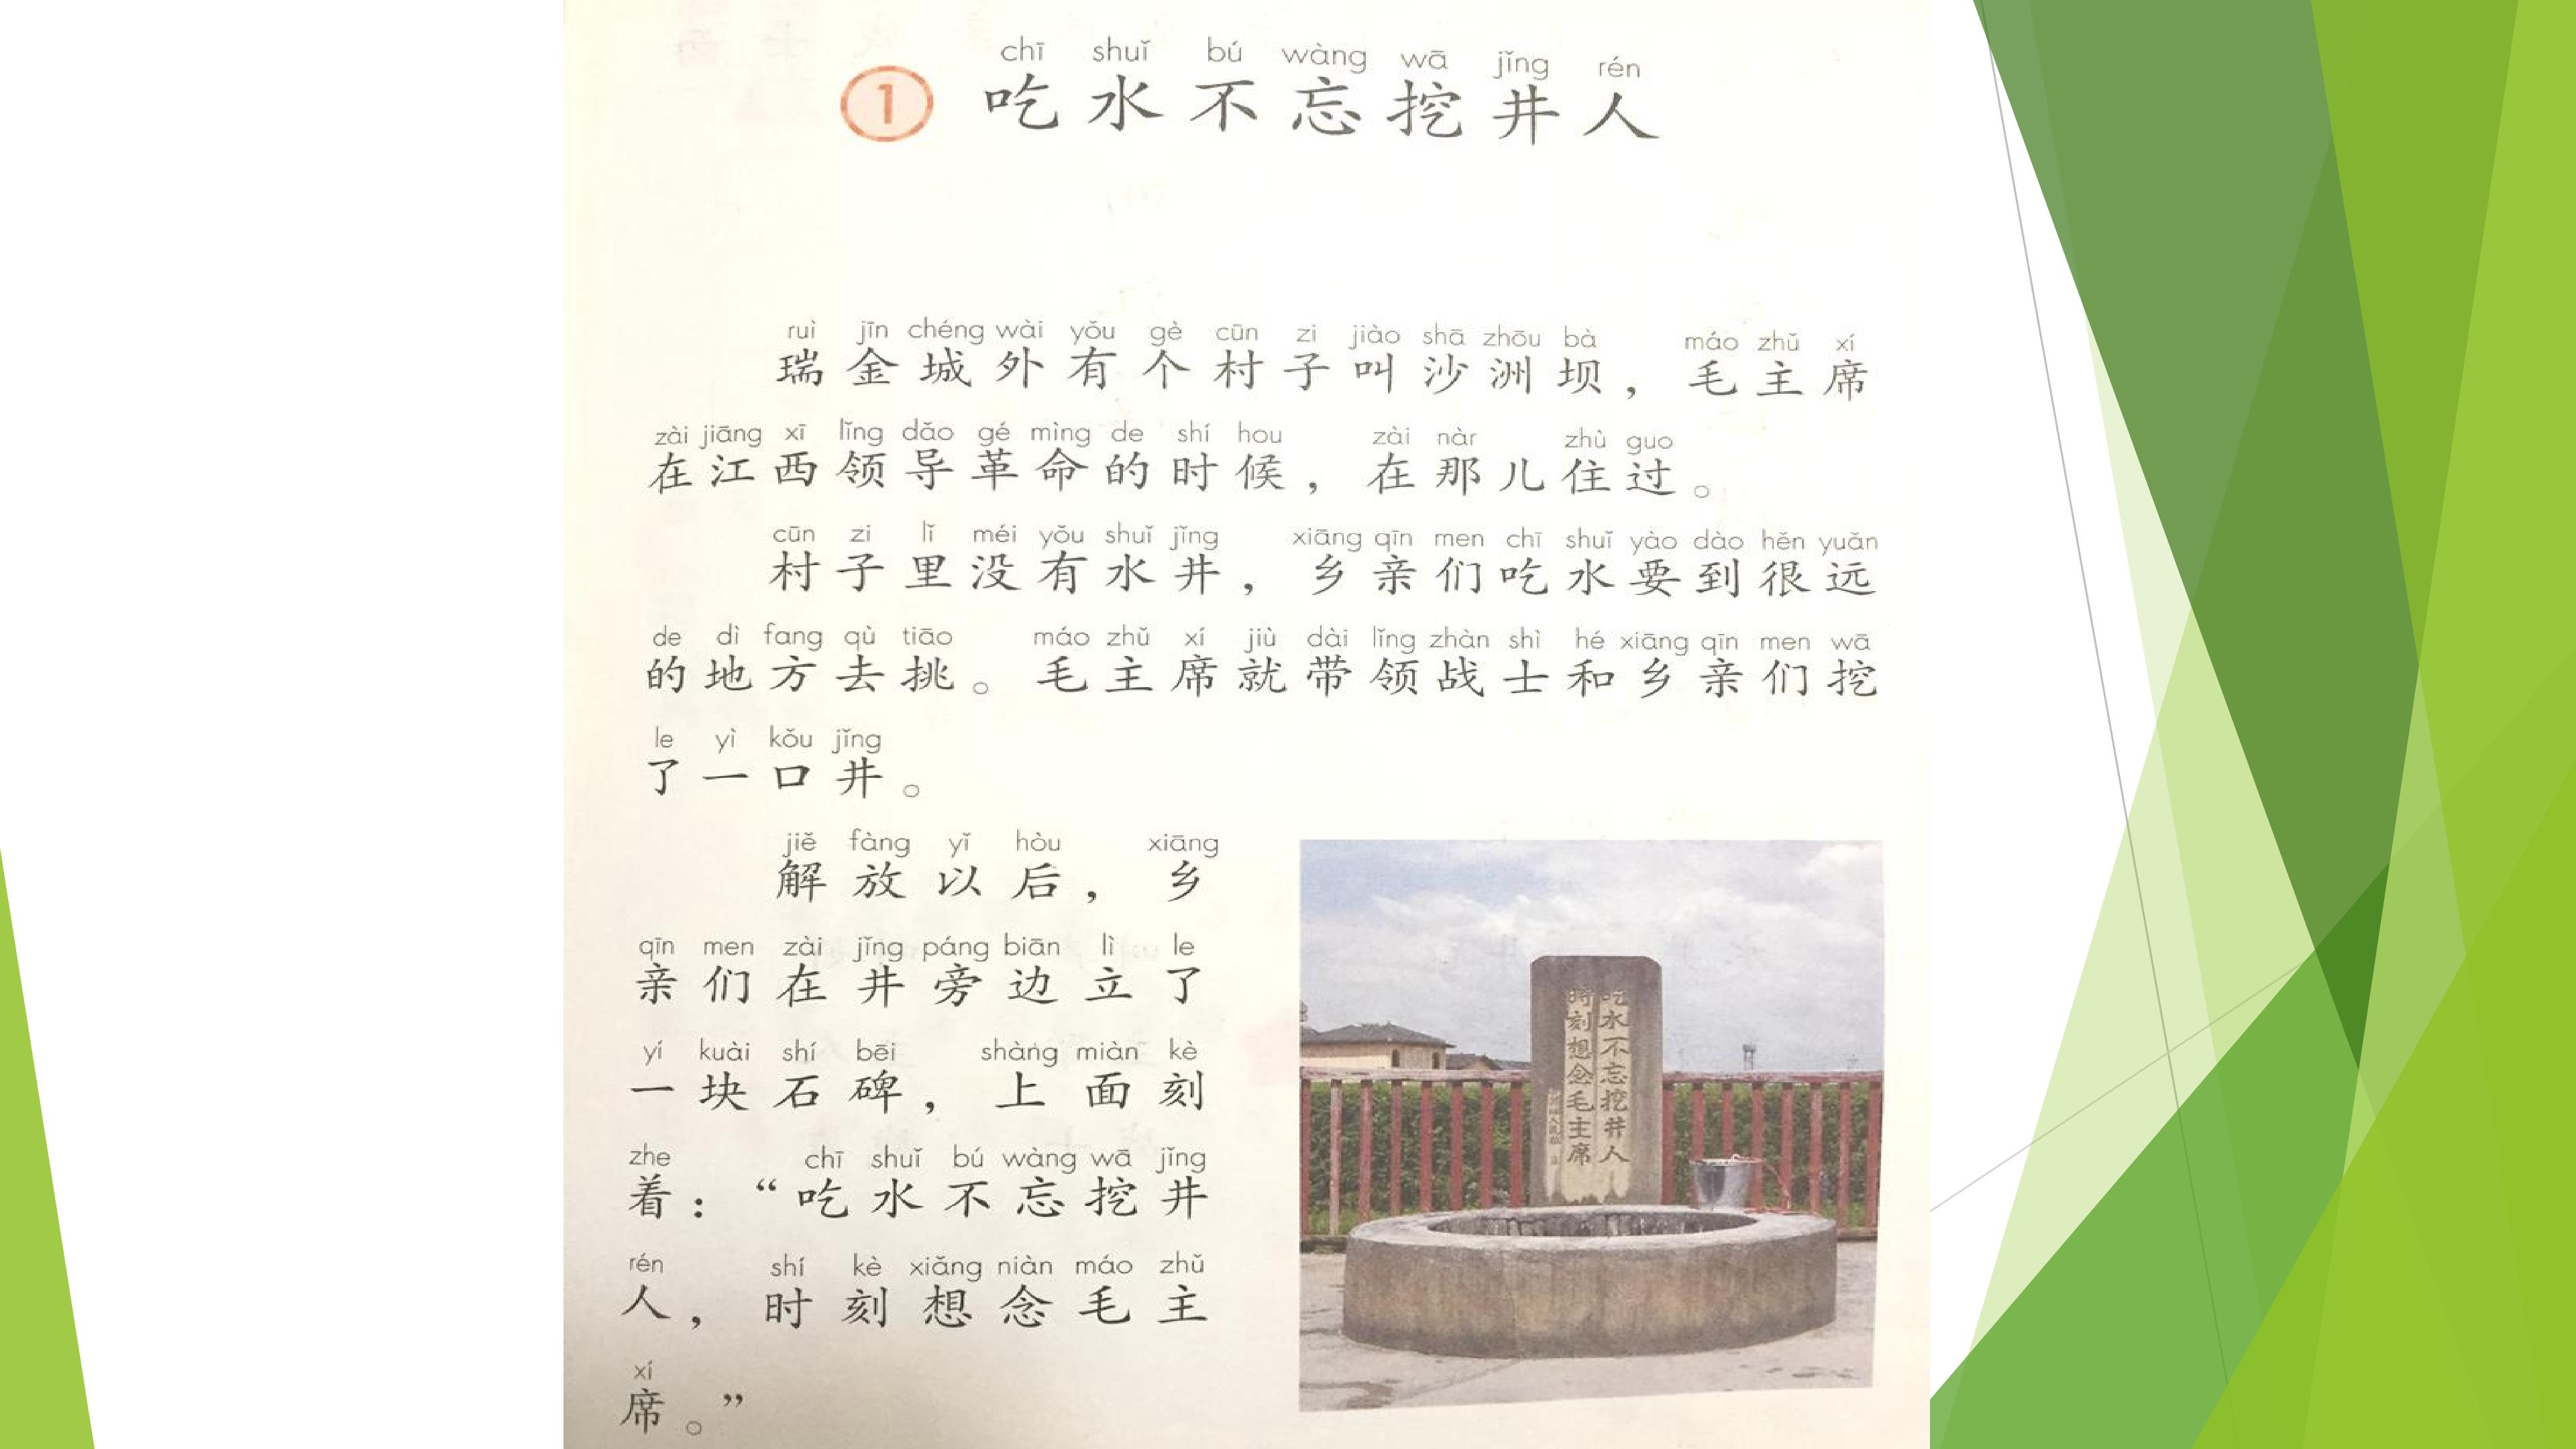 chī shuǐ bú wàng wā jǐng rén
1 吃水不忘挖井人
ruì jīn chéng wài yǒu gè cūn zi jiào shā zhōu bà máo zhǔ xí
瑞金城外有个村子叫沙洲坝，毛主席
zài jiāng xī lǐng dǎo gé mìng de shí hou zài nàr zhù guo
在江西领导革命的时候，在那儿住过。
cūn zi lǐ méi yǒu shuǐ jǐng xiāng qīn men chī shuǐ yào dào hěn yuǎn
村子里没有水井，乡亲们吃水要到很远
de dì fang qù tiāo máo zhǔ xí jiù dài lǐng zhàn shì hé xiāng qīn men wā
的地方去挑。毛主席就带领战士和乡亲们挖
le yì kǒu jǐng
了一口井。
jiě fàng yǐ hòu xiāng
解放以后，乡
qīn men zài jǐng páng biān lì le
亲们在井旁边立了
yí kuài shí bēi shàng miàn kè
一块石碑，上面刻
zhe chī shuǐ bú wàng wā jǐng
着：“吃水不忘挖井
rén shí kè xiǎng niàn máo zhǔ
人，时刻想念毛主
xí
席。”
吃水不忘挖井人
時刻想念毛主席